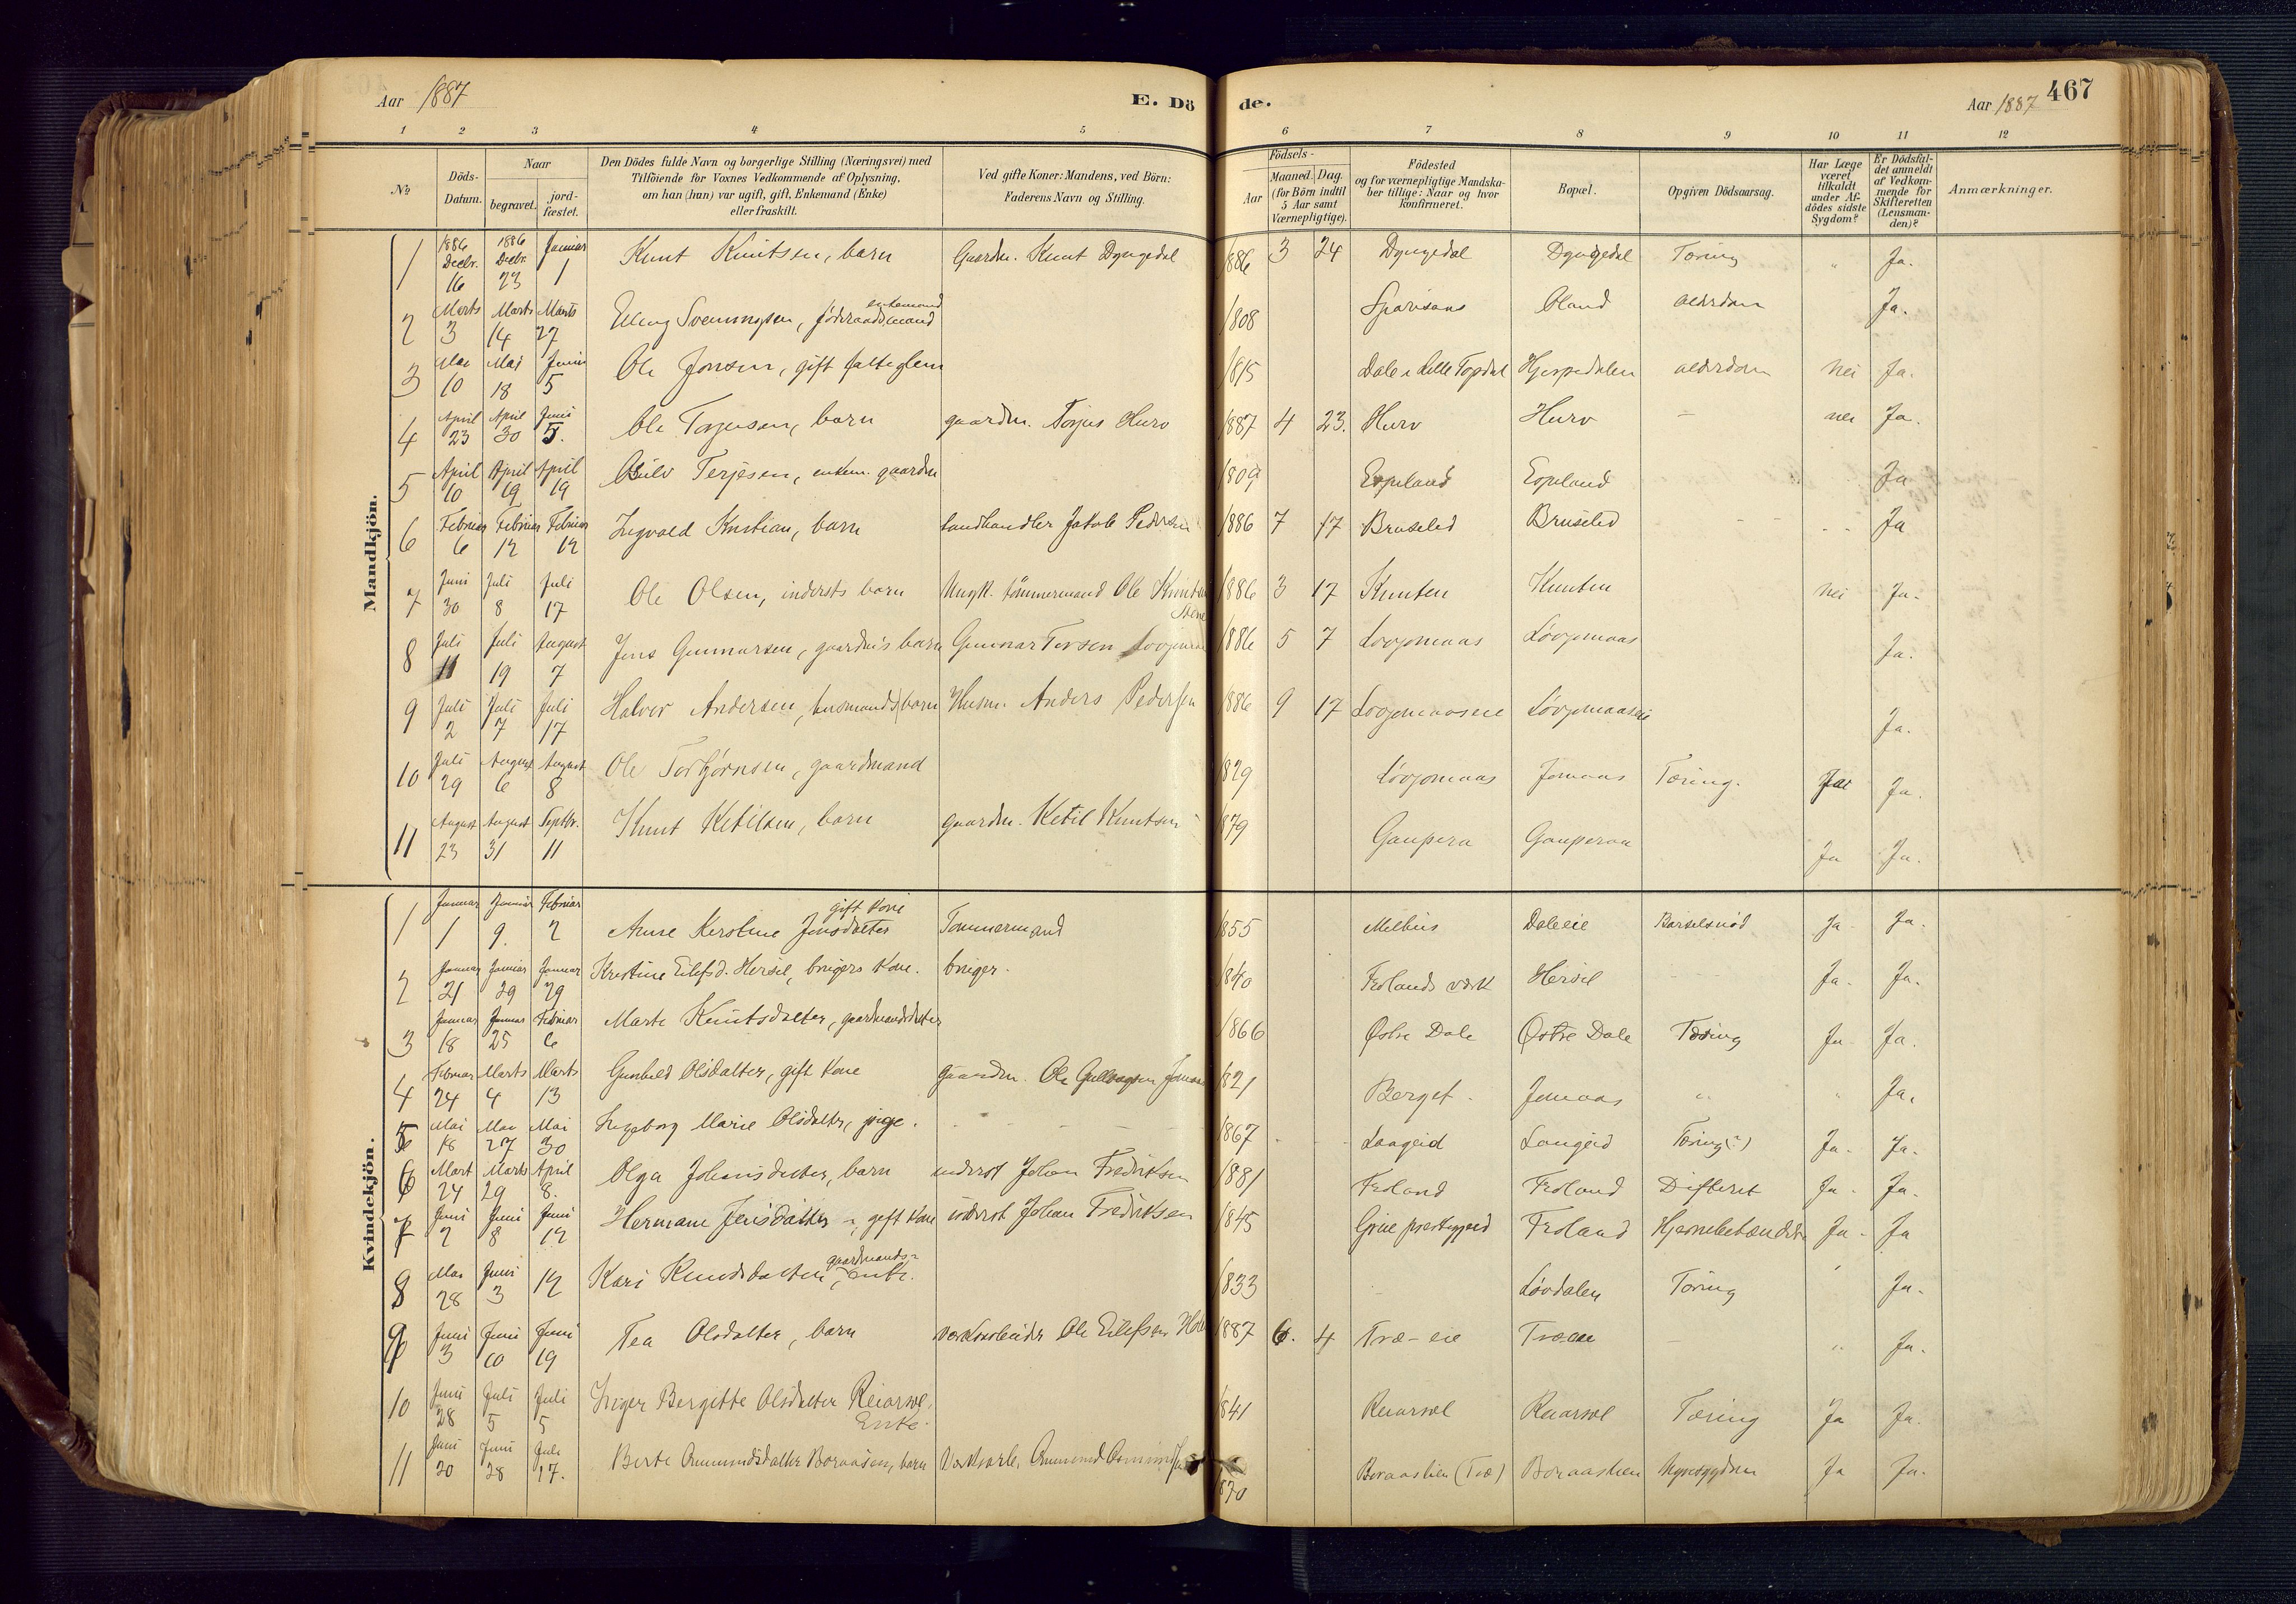 Aar 1887 E. Dö de. Aar 1887 467
1 2 3 4 5 6 7 8 9 10 11 12
No
Döds-Datum.
Naar
begravet.
jord-fæstet.
Den Dödes fulde Navn og borgerlige Stilling (Næringsvei) med
Tilföiende for Voxnes Vedkommende af Oplysning,
om han (hun) var ugift, gift, Enkemand (Enke)
eller fraskilt.
Ved gifte Koner: Mandens, ved Börn:
Faderens Navn og Stilling.
Födsels-
Aar
Maaned. Dag.
(for Börn indtil
5 Aar samt
Værnepligtige).
Födested
og for værnepligtige Mandska-
ber tillige: Naar og hvor
konfirmeret.
Bopæl.
Opgiven Dödsaarsag.
Har Læge
været
tilkaldt
under Af-
dödes sidste
Sygdom?
Er Dödsfal-
det anmeldt
af Vedkom-
mende for
Skifteretten
(Lensman-
den)?
Anmærkninger.
Mandkjön.
1 1886 Decbr. 16 1886 Decbr. 23 Januar 1 Knut Knutsen, barn Gaardm. Knut Dyngedal 1886 3 24 Dyngedal Dyngedal Tæring " Ja.
2 Marts 3 Marts 14 Marts 27 Elling Svenningsen, føderaadsmand enkemand 1808 Oland alderdom Ja.
3 Mai 10 Mai 18 Juni 5 Ole Jonsen, gift fattiglem 1815 Dale i Lille Topdal Hjerpedalen alderdom Nei Ja.
4 April 23 April 30 Juni 5. Ole Torjusen, barn gaardm. Torjus Hurv 1887 4 23. Hurv Hurv – nei Ja.
5 April 10 April 19 April 19 Osulv Terjesen, enkem. gaardm 1809 Espeland Espeland Ja
6 Februar 6 Februar 12 Februar 12 Ingvald Kristian, barn landhandler Jakob Pedersen 1886 7 17 Bruseled Bruseled Ja
7 Juni 30 Juli 8 Juli 17 Ole Olsen, indersts barn Ungk. tömmermand Ole Knutsen 1886 3 17 Knuten Knuten nei Ja.
8 Juli 11 Juli 19 August 7 Jens Gunnarsen, gaardm's barn Gunnar Torsen Lovjomaas 1886 5 7 Lovjomaas Lovjomaas Ja.
9 Juli 2 Juli 7 Juli 17 Halvor Andersen, husmands barn Husm. Anders Pedersen 1886 9 17 Lovjomaaseie Løvjomaaseie Ja.
10 Juli 29 August 6 August 8 Ole Torbjørnsen, gaardmand 1829 Løvjomaas Jomaas Tæring. Ja Ja.
11 August 23 August 31 Septbr. 11 Knut Ketilsen, barn gaardm. Ketil Knutsen 1879 Gaupera Gauperaa Ja Ja.
Kvindekjön.
1 Januar 1 Januar 9. Februar 2 Anne Kirstine Jensdatter gift kone Tømmermand 1855 Melhus Daleeie Barselsnød Ja Ja.
2 Januar 21 Januar 29 Januar 29 Kristine Eilefsd. Hersel, brugers kone. bruger. 1840 Frolands værk Hersel Ja. Ja.
3 Januar 18 Januar 25 Februar 6 Marte Knutsdatter, gaardmandsdatter 1866 Østre Dale Østre Dale Tæring Ja Ja.
4 Februar 24 Marts 4 Marts 13 Gunhild Olsdatter, gift kone gaardm. Ole Gullvagsen Jomaas 1821 Berget Jomaas " " Ja.
5 Mai 18 Mai 27 Mai 30 Ingeborg Marie Olsdatter, pige. 1867 Laugeid Laugeid Tæring (?) Ja. Ja.
6 Mart 24 Marts 29 April 8. Olga Johansdatter, barn inderst Johan Fredriksen 1881 Froland Froland Difterit Ja. Ja.
7 Juni 2 Juni 8 Juni 12 Hermane Jensdatter, gift kone inderst Johan Fredriksen 1845 Froland Ja. Ja
8 Mai 28 Juni 3 12 Kari Knudsdatter, gaardmands-enke. 1833 Løvdalen Tæring Ja.
9 Juni 3 Juni 10 Juni 19 Tea Olsdatter, barn Værksarbeider Ole Eilefsen 1887 6. 4 Træ-eie Træeie – " Ja.
10 Juni 28 Juli 5 Juli 5 Inger Bergitte Olsdatter Reiarsøl, Enke. 1841 Reiarsøl Reiarsøl Tæring Ja Ja.
11 Juni 20 Juni 28 Juli 17. Berte Ommundsdatter Boraasen, barn Værksarb. Ommund 1870 Boraaslien (Træ) Boraaslien Nyresygdom Ja Ja.